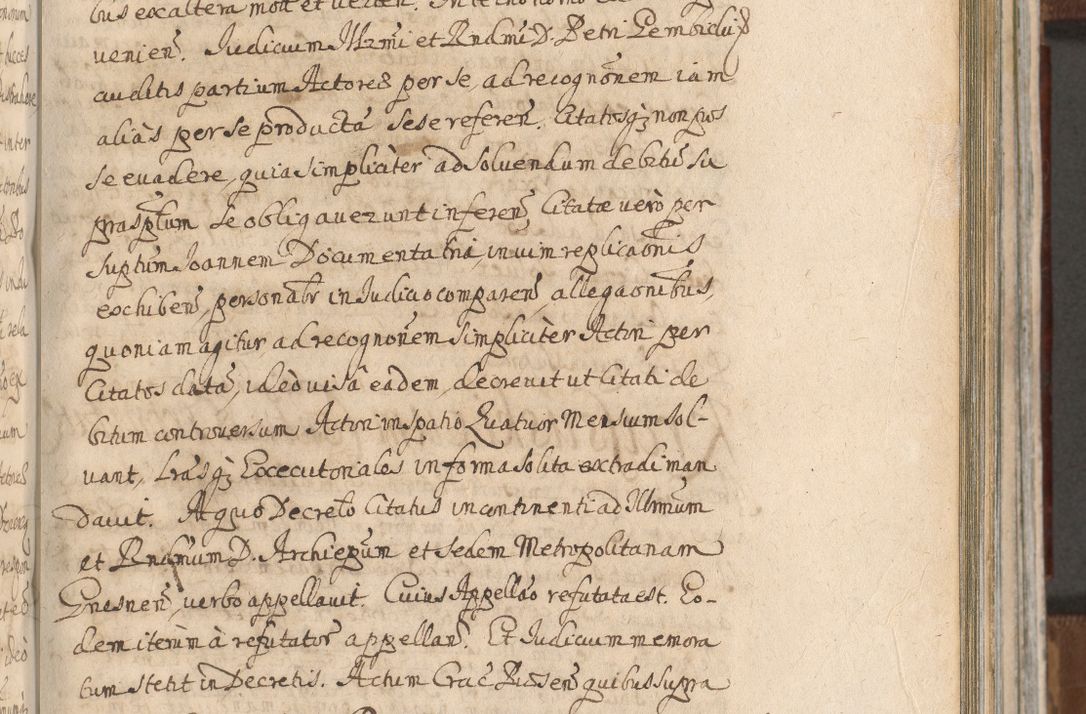 bus ex altera mott et verten.
venien. Judicium Illrmi et Rndmi D. Petri Gembicki
auditis partium Actores per se, ad recognõnem iam
aliàs per se productã sese referen. Citatosq; non pos
se evadere, quia simpliciter ad solvendum debitũ su
prasptum se obligaverunt inferen, Citatæ verò per
suptum Joannem Documenta tria, in vim replicaõnis
exhiben, personalr in Judicio comparen, allegaõnibus,
quoniam agitur ad recognõnem simpliciter Actori per
Citatos datã, ideò visâ eadem, decrevit ut Citati de
bitum controversum Actori in spatio Quatuor Mensium sol-
vant, Lrasq; Executoriales in forma solita extradi man
davit. A quo Decreto Citatus in continenti ad Illrmum
et Rndmum D. Archiepum et sedem Metropolitanam
Gnesnen, verbo appellavit. Cuius Appellão refutata est. Eo-
dem iterùm à refutator appellan. Et Judicium memora
tum stetit in Decretis. Actum Crac Pnsen quibus supra